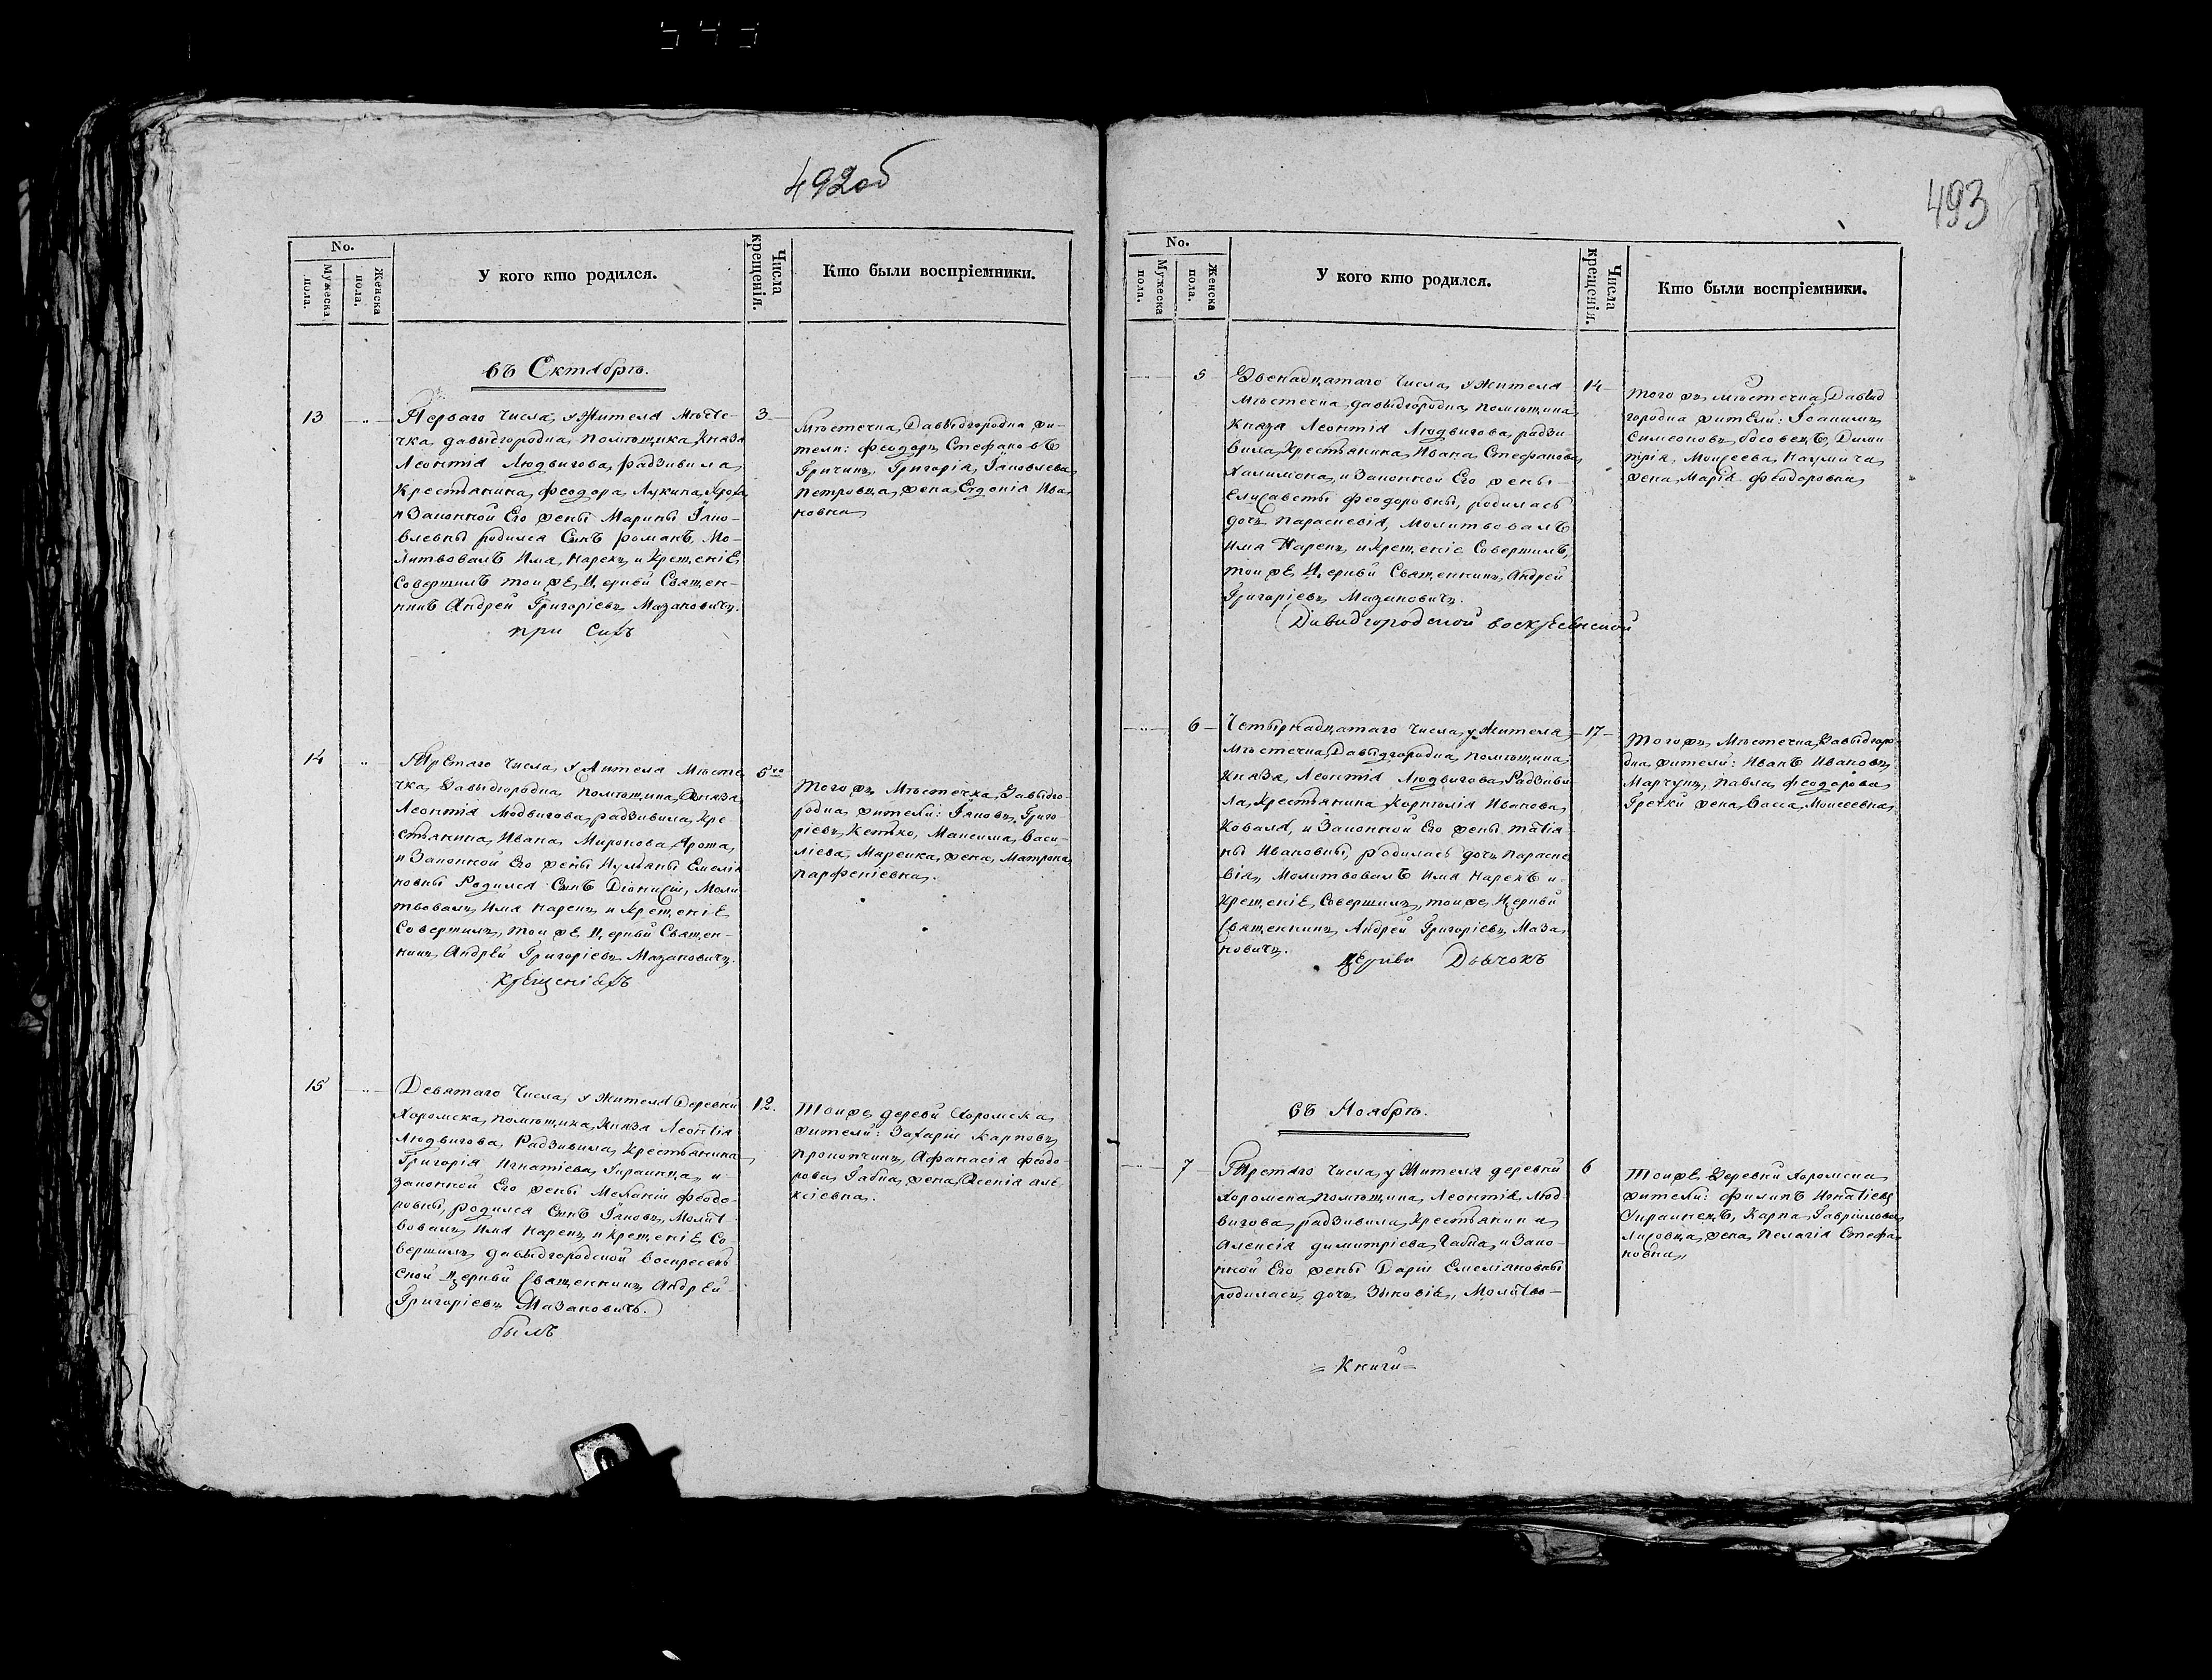 492об
No.
Мужеска пола.
Женска пола.
У кого кто родился.
Числа крещенія.
Кто были воспріемники.
въ Октябрѣ.
13
Перваго числа, у Жителя Мѣсте-
чка давыдгородка, помѣщика, Князя
Леонтія Людвигова, радзивила,
Крестьянина, Феодора, Лукина,
и Законной Его жены Марины Іако-
влевны родился Сынъ романъ, Мо-
литвовалъ Имя, нарекъ и крещеніЕ
Совершилъ тои же Церкви Священ-
никъ Андрей Григоріевъ Мазановичъ.
при сихъ
3
Мѣстечка, Давыдгородка жи-
тели: Феодоръ Стефановъ
Гричикъ, Григорія, Іаковлева
Петровца, жена, Евдокія Ива
новна
14
Третаго числа, у Жителя Мѣсте
чка, Давыдгородка, помѣщика, Князя
Леонтія Людвигова, радзивила, Кре
стьянина, Ивана Миронова,
и Законной Его жены Иульяны Емелія
новны Родился Сынъ Діонисій, Моли
твовалъ Имя нарекъ и крещеніЕ
Совершилъ, тои жЕ Церкви Священ-
никъ Андрей Григоріевъ Мазановичъ.
крещеніяхъ
5го
Того жъ Мѣстечка, Давыдго-
родка жители: Іаковъ, Григо-
ріевъ, Максима, Васи-
ліева, Марейка, жена, Матрона
Парфеніевна.
15
Девятаго Числа, у Жителя Деревни
Хоромска, помѣщика, Князя Леонтія
Людвигова, Радзивила, Крестьянина
Григорія Игнатіева, Украинца, и
законной Его жены Меланіи Феодо-
ровны, родился Сынъ Іаковъ, Молит
вовалъ Имя нарекъ и крещеніЕ Со-
вершилъ давыдгородской Воскресен
ской церкви Священникъ Андрей
Григоріевъ Мазановичъ.
былъ
12.
Тоиже деревни Хоромска
жители: Захарій Карповъ
Прокопчикъ, Афанасія Феодо-
рова, Габца, жена, Ксенія Але
ксіевна.
493
No.
Мужеска пола.
Женска пола.
У кого кто родился.
Числа крещенія.
Кто были воспріемники.
5
Двенадцатаго Числа, у Жителя
Мѣстечка давыдгородка, помѣщика,
Князя Леонтія Людвигова, радзи-
вила, Крестьянина, Ивана Стефанова,
Халимона, и Законной Его жены
Елисаветы Феодоровны, родилась
дочь Параскевія, Молитвовалъ
Имя Нарекъ, и крещеніе Совершилъ,
тои жЕ Церкви Священникъ, Андрей
Григоріевъ Мазановичъ.
Давидгородской воскресенской
14
Того жъ Мѣстечка, Давыд
городка жители: Іоакимъ
Симеоновъ босовецъ, Дими
трія, Моисеева, Наумича
жена, Марія Феодоровна
6
Четырнадцатаго Числа, у Жителя,
Мѣстечка, Давыдгородка, помѣщика,
Князя, Леонтія Людвигова, Радзиви
ла, Крестьянина, Корнилія Иванова,
Коваля, и Законной Его жены татія
ны Ивановны, родилась дочь параске
вія, Молитвовалъ Имя нарекъ и
крещеніЕ, Совершилъ, тоиже, Церкви
Священникъ Андрей Григоріевъ, Маза
новичъ.
церкви Дьячокъ
17
Тогожъ, Мѣстечка, Давыдгоро
дка, жители: Иванъ Ивановъ
Марчукъ, Павла, Феодорова,
Гречки жена, Васса, Моисеевна,
въ Ноябрѣ.
7
Третаго числа, у Жителя деревни
Хоромска, помѣщика, Леонтія, Люд-
вигова, радзивила, Крестьянина
Алексія димитріева, Габца, и Зако-
нной Его жены Даріи Емеліяновны
родилась, дочь ЗиновіЕ, Молитво-
= Книги =
6
ТоижЕ, Деревни Хоромска
жители: Филипъ Игнатіевъ
Украинецъ, Карпа, Гавріилова,
жена, Пелагія Стефа
новна,,